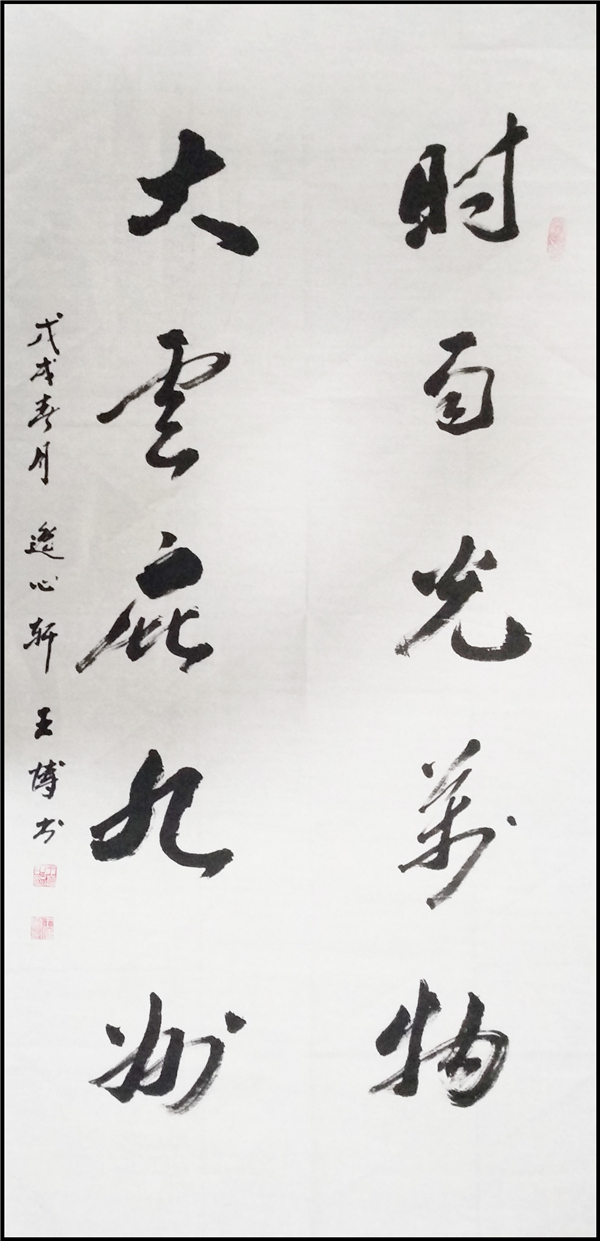 时雨光萬物
大雲庇九州
戊戌春月 心轩 王博书